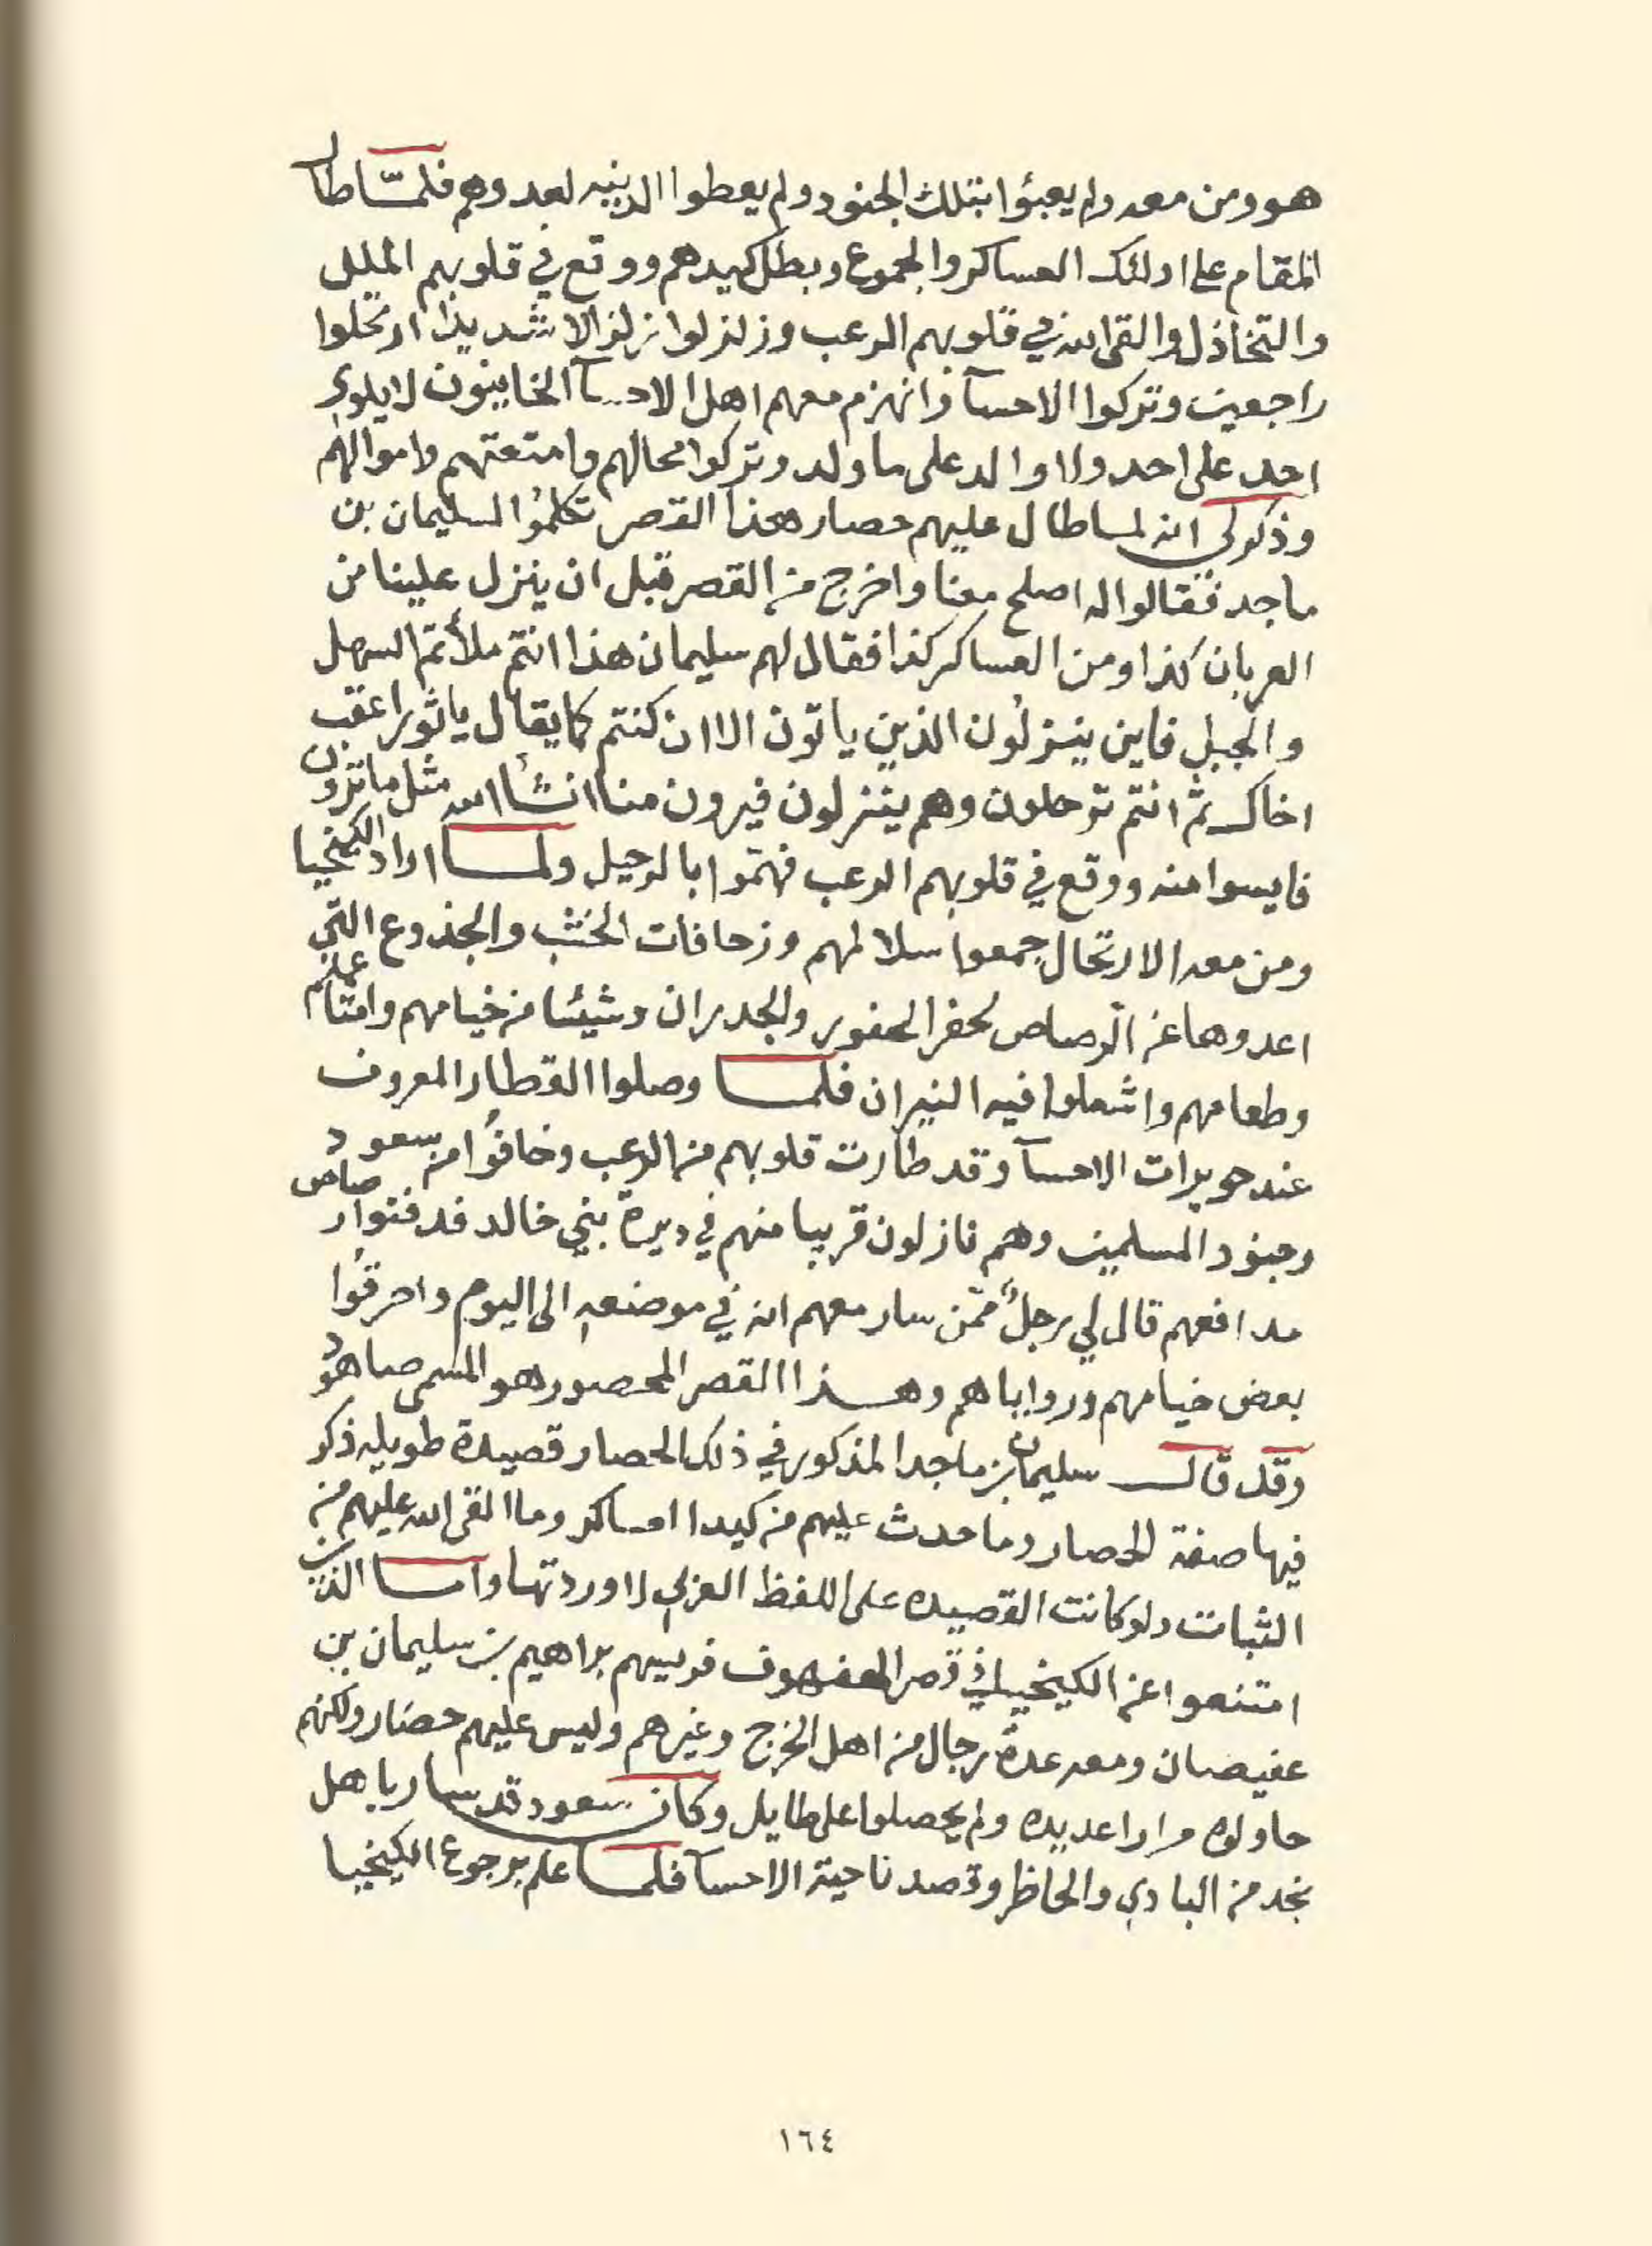 هو ومن معه ولم يعبئوا بتلك الجنود ولم يعطوا الدنيه لعدوهم فلمّا طال
المقام على اولئك العساكر والجموع وبطل كيدهم ووقع في قلوبهم الملل
والتخاذل والقى الله في قلوبهم الرعب وزلزلوا زلزالا شديدا ارتحلوا
راجعين وتركوا الاحسآ وانهزم معهم اهل الاحسآ الخاينون لا يلوي
احد على احد ولا والد على ما ولد وتركوا محالهم وامتعتهم واموالهم
وذكر لي انه لما طال عليهم حصار هذا القصر تكلموا لسليمان بن
ماجد فقالوا له اصلح معنا واخرج من القصر قبل ان ينزل علينا من
العربان كذا ومن العساكر كذا فقال لهم سليمان هذا انتم ملأتم السهل
والجبل فاين ينزلون الذين ياتون الا ان كنتم كما يقال يا ثور اعقب
اخاك ثم انتم ترحلون وهم ينزلون فيرون منا انشأ الله مثل ما ترون
فايسوا منه ووقع في قلوبهم الرعب فهمّوا بالرحيل ولما اراد الكيخيا
ومن معه الارتحال جمعوا سلالمهم وزحافات الخشب والجذوع التي
اعدوها عن الرصاص لحفر الحفور والجدران وشيئا من خيامهم وامتاعهم
وطعامهم واشعلوا فيه النيران فلما وصلوا القطار المعروف
عند حويرات الاحسآ وقد طارت قلوبهم من الرعب وخافوا من سعود
وجنود المسلمين وهم نازلون قريبا منهم في ديرة بني خالد فدفنوا رصاص
مدافعهم قال لي رجلٌ ممّن سار معهم انه في موضعه الى اليوم واحرقوا
بعض خيامهم ورواياهم وهذا القصر المحصور هو المسمى صاهود
وقد قال سليمان بن ماجد المذكور في ذلك الحصار قصيدة طويله ذكر
فيها صفة الحصار وما حدث عليهم من كيد العساكر وما القى الله عليهم من
الثبات ولو كانت القصيده على اللفظ العربي لاوردتها واما الذين
امتنعوا عن الكيخيا في قصر الهفهوف فرييسهم براهيم بن سليمان بن
عفيصان ومعه عدة رجال من اهل الخرج وغيرهم وليس عليهم حصار ولكنهم
حاولوه مرارا عديده ولم يحصلوا على طايل وكان سعود قد سار باهل
نجد من البادي والحاظر وقصد ناحية الاحسآ فلما علم برجوع الكيخيا
١٦٤